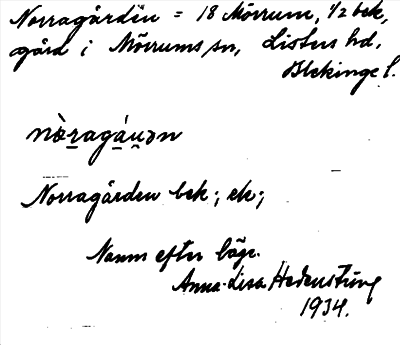 Norragården = 18 Mörrum, 1/2 bek,
gård i Mörrums sn, Listers hd,
Blekinge l.
nòragáu̯ən
Norragården bek; ek;
Namn efter läge.
Anna-Lisa Hedenstierna
1934.